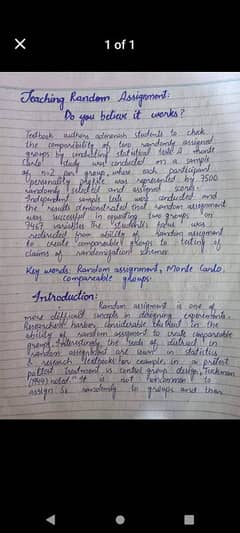 1 of 1
Teaching Random Assignment:
Do you believe it works?
Textbook authors admonish students to check
the comparibility of two randomly assigned
groups by conducting statistical tests. A monte
Carlo study was conducted on a sample
of n=2 per group, where each participant
personality profile was represented by 7500
randomly selected and assigned scores.
Independent sample tests were conducted and
the results demonstrated that random assignment
was successful in equating two groups on
7467 variables. The students focus was
redirected from ability of random assignment
to create comparable groups to testing of
claims of randomization schemes.
Key words: Random assignment, Monte Carlo,
Compareable groups.
Introduction:
Random assignment is one of
more difficult concepts in designing experiments.
Researchers harbor considerable distrust in the
ability of random assignment to create comparable
groups. Interestingly, the seeds of distrust in
random assignment are sown in statistics
& research textbooks for example, in a pretest
posttest treatment vs control group design, Tuckman
(1999) noted "It is not uncommon to
assign Ss randomly to groups and then